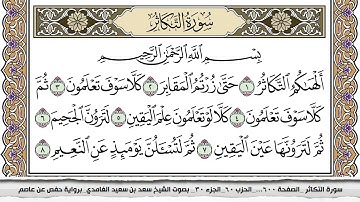 سُورَةُ التَّكَاثُرِ
بِسْمِ اللَّهِ الرَّحْمَٰنِ الرَّحِيمِ
أَلْهَاكُمُ التَّكَاثُرُ ١ حَتَّىٰ زُرْتُمُ الْمَقَابِرَ ٢ كَلَّا سَوْفَ تَعْلَمُونَ ٣ ثُمَّ
كَلَّا سَوْفَ تَعْلَمُونَ ٤ كَلَّا لَوْ تَعْلَمُونَ عِلْمَ الْيَقِينِ ٥ لَتَرَوُنَّ الْجَحِيمَ ٦
ثُمَّ لَتَرَوُنَّهَا عَيْنَ الْيَقِينِ ٧ ثُمَّ لَتُسْأَلُنَّ يَوْمَئِذٍ عَنِ النَّعِيمِ ٨
سورة التكاثر _الصفحة ٦٠٠... الحزب ٦٠_الجزء ٣٠_ بصوت الشيخ سعد بن سعيد الغامدي برواية حفص عن عاصم